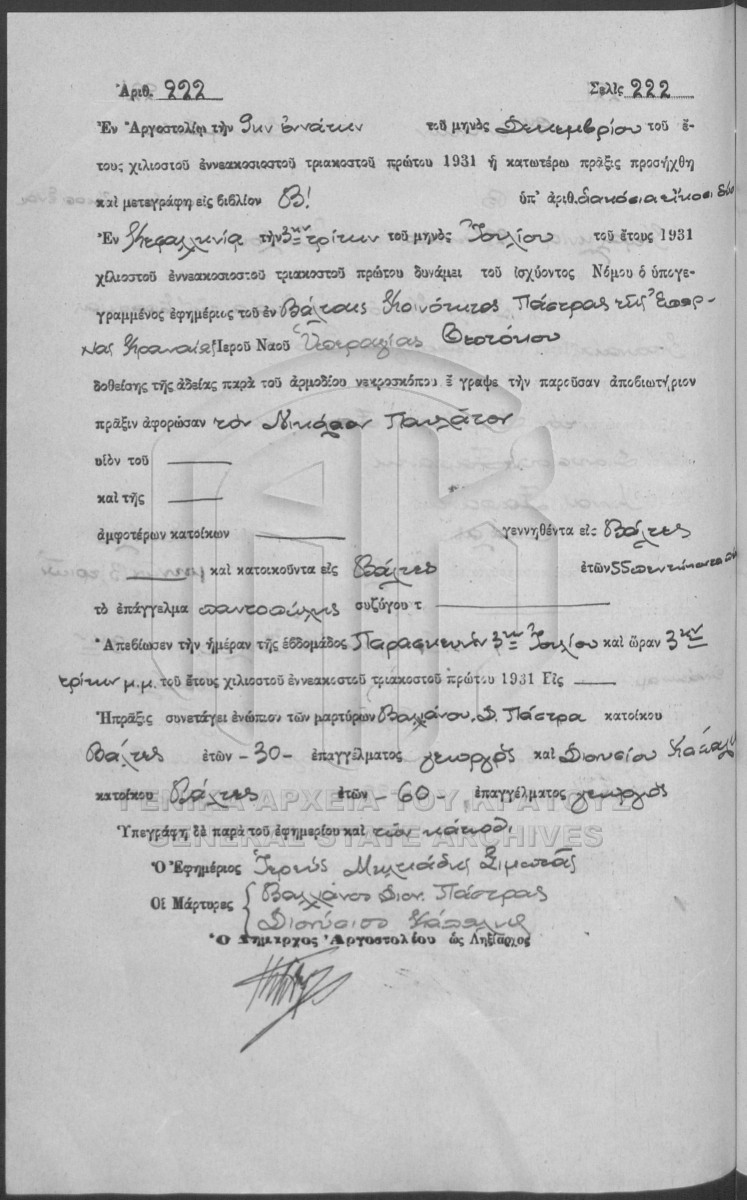 Ἀριθ. 222 Σελὶς 222
Ἐν Ἀργοστολίῳ τὴν 9ην ἐννάτην τοῦ μηνὸς Δεκεμβρίου τοῦ ἔ-
τους χιλιοστοῦ ἐννεακοσιοστοῦ τριακοστοῦ πρώτου 1931 ἡ κατωτέρω πρᾶξις προσήχθη
καὶ μετεγράφη εἰς βιβλίον Β! ὑπ' ἀριθ. διακόσια εἴκοσι δύο
Ἐν Κεφαλληνίᾳ τὴν 3ην τρίτην τοῦ μηνὸς Ἰουλίου τοῦ ἔτους 1931
χιλιοστοῦ ἐννεακοσιοστοῦ τριακοστοῦ πρώτου δυνάμει τοῦ ἰσχύοντος Νόμου ὁ ὑπογε-
γραμμένος ἐφημέριος τοῦ ἐν Βάλταις Κοινότητος Πάστρας τῆς Ἐπαρ-
χίας Κραναίας Ἱεροῦ Ναοῦ Ὑπεραγίας Θεοτόκου
δοθείσης τῆς ἀδείας παρὰ τοῦ ἁρμοδίου νεκροσκόπου ἔγραψε τὴν παροῦσαν ἀποβιωτήριον
πρᾶξιν ἀφορῶσαν τὸν Νικόλαον Παυλάτον
υἱὸν τοῦ
καὶ τῆς
ἀμφοτέρων κατοίκων γεννηθέντα εἰς Βάλτες
καὶ κατοικοῦντα εἰς Βάλτες ἐτῶν 55
τὸ ἐπάγγελμα παντοπώλης συζύγου τ
Ἀπεβίωσεν τὴν ἡμέραν τῆς ἑβδομάδος Παρασκευὴν 3ην Ἰουλίου καὶ ὥραν 3ην
τρίτην μ.μ. τοῦ ἔτους χιλιοστοῦ ἐννεακοστοῦ τριακοστοῦ πρώτου 1931 Εἰς
Ἡ πρᾶξις συνετάγει ἐνώπιον τῶν μαρτύρων Βαλλιάνου Δ. Πάστρα κατοίκου
Βάλτες ἐτῶν - 30 - ἐπαγγέλματος γεωργὸς καὶ Διονυσίου
κατοίκου Βάλτες ἐτῶν - 60 - ἐπαγγέλματος γεωργὸς
Ὑπεγράφη δὲ παρὰ τοῦ ἐφημερίου καὶ τῶν κάτωθι
ΓΕΝΙΚΑ ΑΡΧΕΙΑ ΤΟΥ ΚΡΑΤΟΥΣ
GENERAL STATE ARCHIVES
Ὁ Ἐφημέριος Ἱερεὺς Μιλτιάδης Σιμωτᾶς
Οἱ Μάρτυρες Βαλλιάνο Διον. Πάστρας
Διονύσιο
Ὁ Δήμαρχος Ἀργοστολίου ὡς Ληξίαρχος